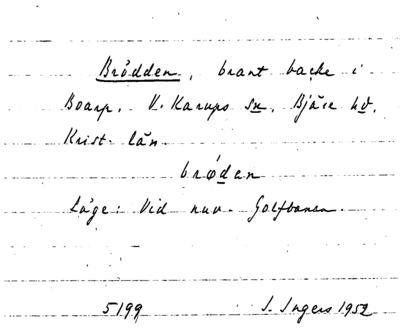 Brödden, brant backe i
Boarp, V. Karups sn, Bjäre hd.
Krist. län
brǿdan
Läge: Vid nuv. Golfbanan.
5199 I. Ingers 1952